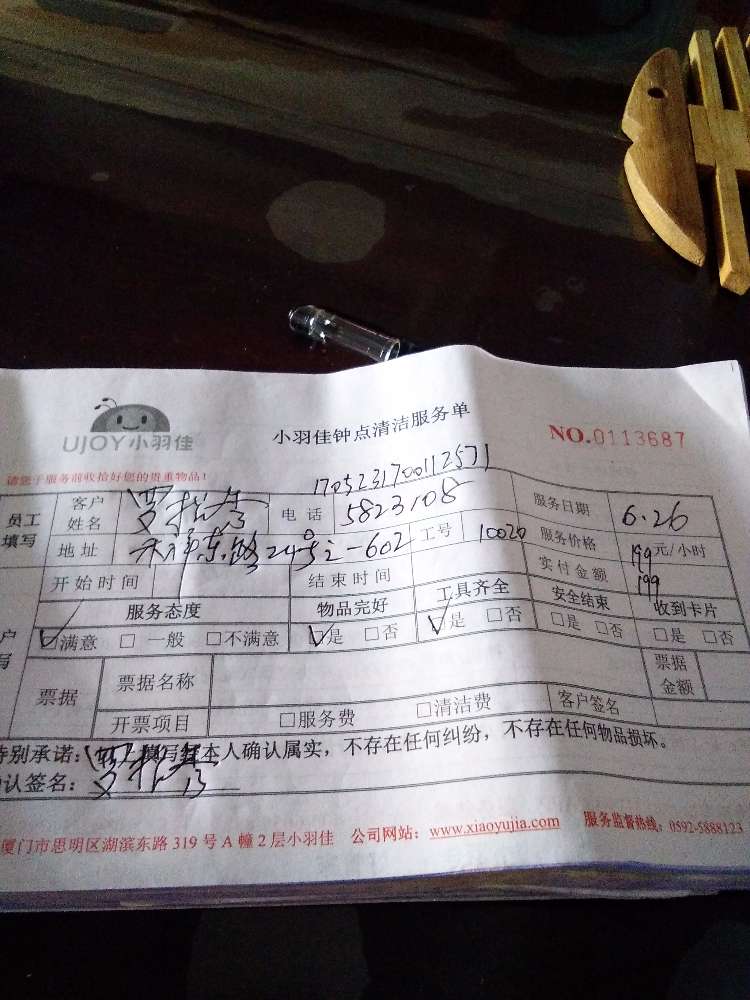 UJOY小羽佳
小羽佳钟点清洁服务单
NO.0113687
请您于服务前收拾好您的贵重物品！
1705231700112571
员工填写 客户姓名 电话 5823108 服务日期 6.26
地址 东路24号之-602 工号 10020 服务价格 199元/小时
开始时间 结束时间 实付金额 199
服务态度 物品完好 工具齐全 安全结束 收到卡片
☑满意 □一般 □不满意 ☑是 □否 ☑是 □否 □是 □否 □是 □否
票据 票据名称 票据金额
开票项目 □服务费 □清洁费 客户签名
特别承诺：填写经本人确认属实，不存在任何纠纷，不存在任何物品损坏。
确认签名：
厦门市思明区湖滨东路 319 号 A 幢 2 层小羽佳 公司网站：www.xiaoyujia.com 服务监督热线：0592-5888123